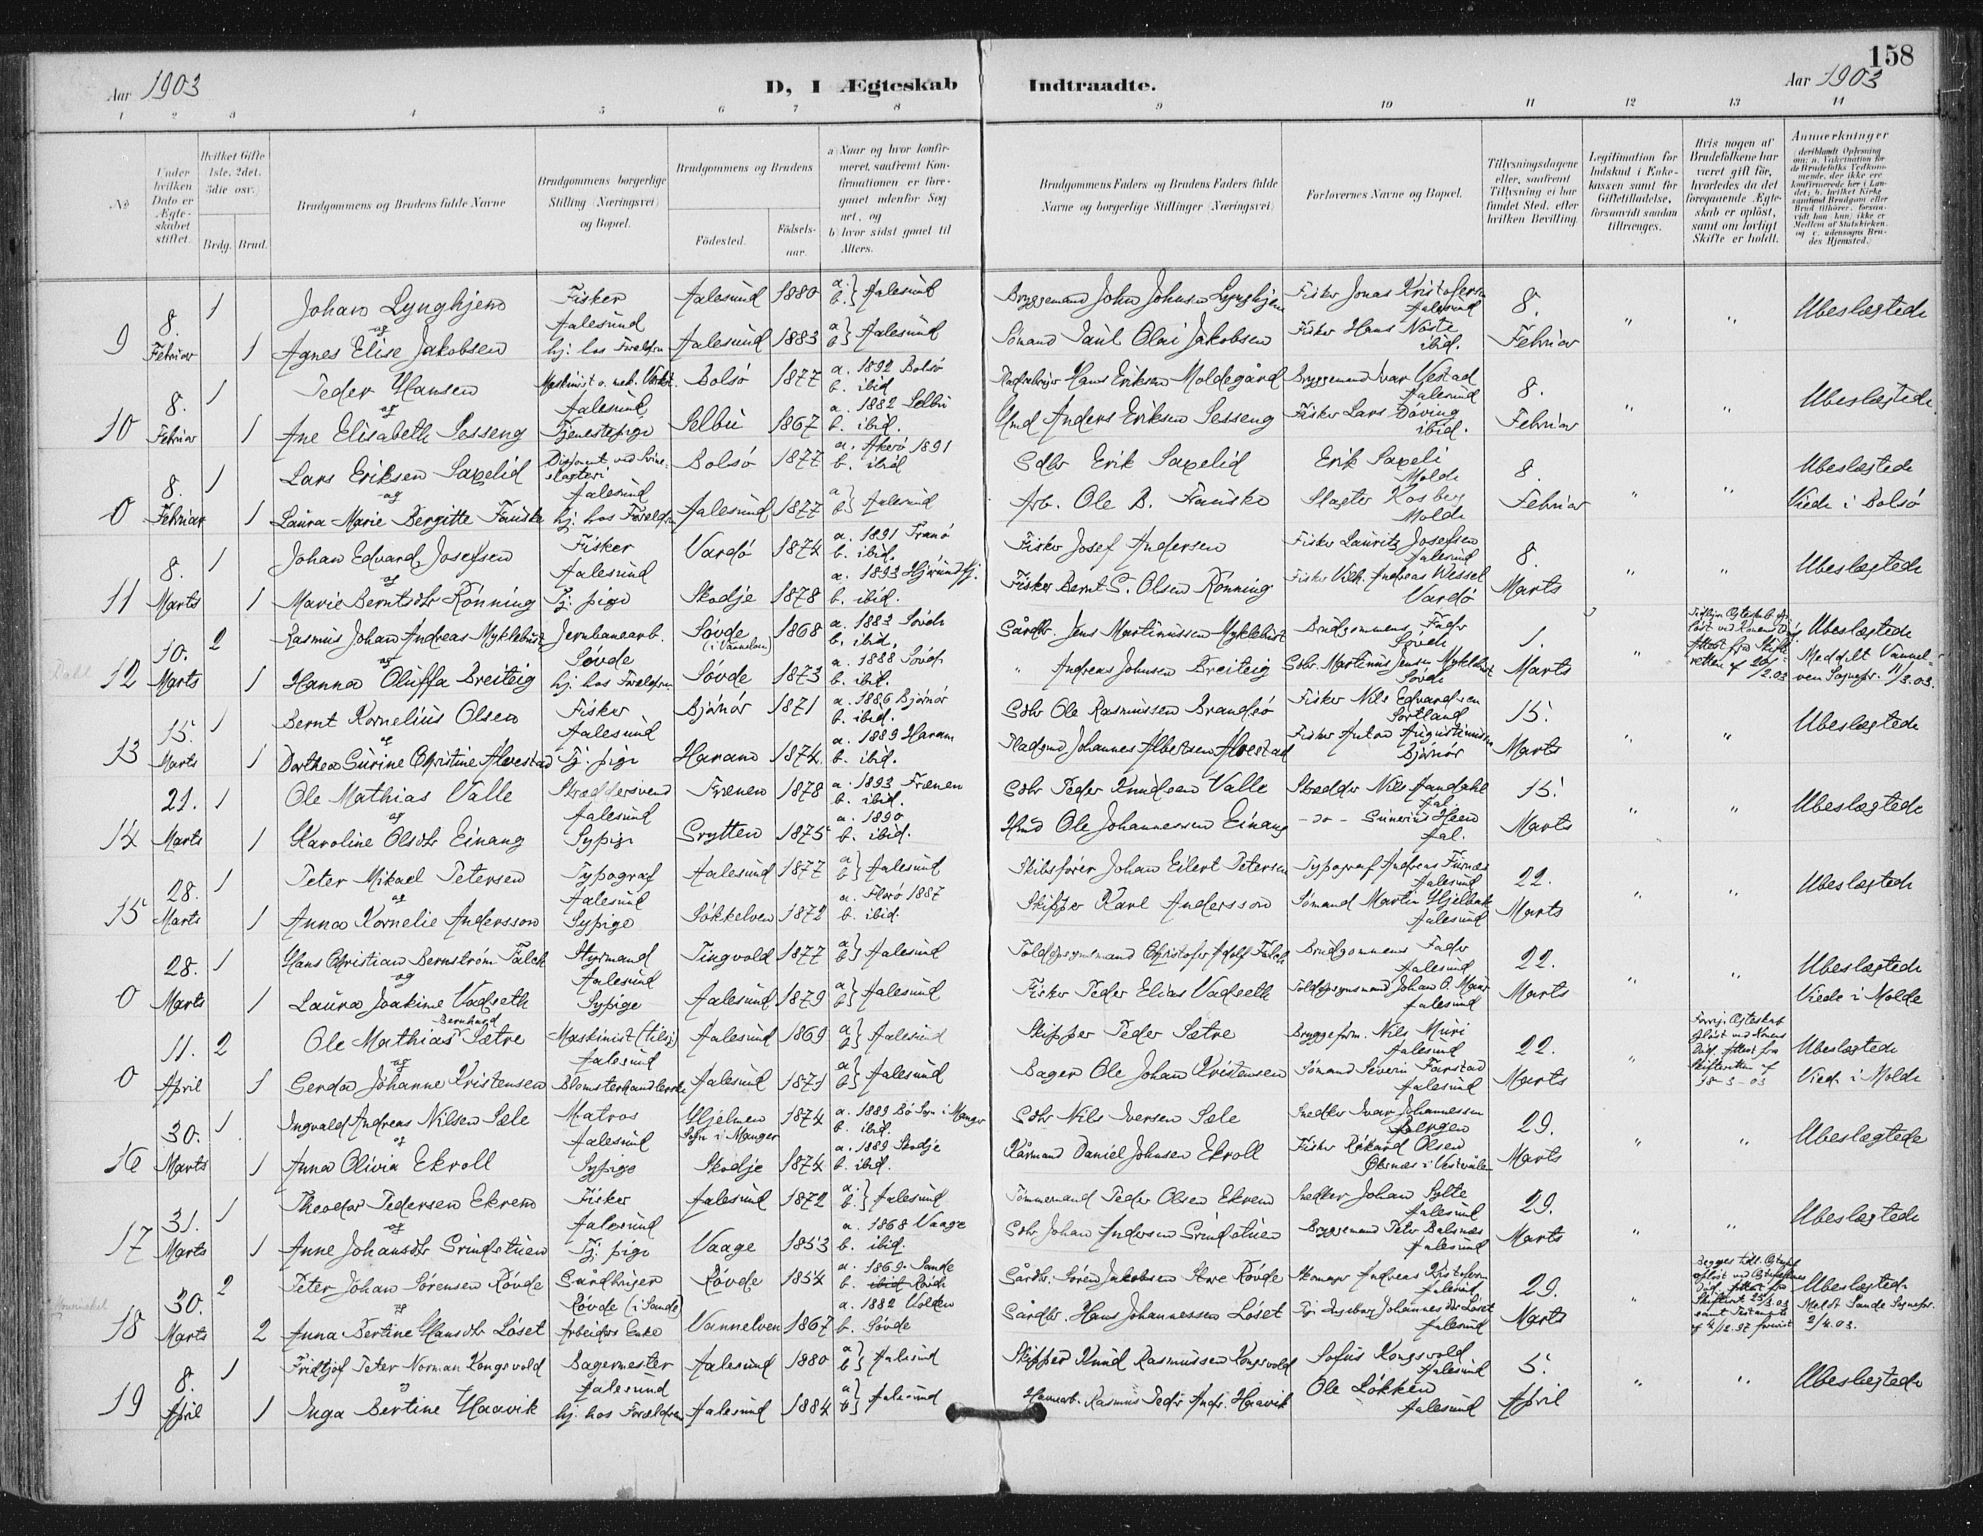 158
Aar 1903
D, I Ægteskab Indtraadte.
Aar 1903
1 2 3 4 5 6 7 8 9 10 11 12 13 14
No
Under hvilken Dato er Ægteskabet stiftet.
Hvilket Gifte (1ste, 2det, 3die osv.)
Brdg. Brud.
Brudgommens og Brudens fulde Navne
Brudgommens borgerlige Stilling (Næringsvei) og Bopæl.
Brudgommens og Brudens
Fødested.
Fødselsaar.
a) Naar og hvor konfirmeret, saafremt Konfirmationen er foregaaet udenfor Sognet, og
b) hvor sidst gaaet til Alters.
Brudgommens Faders og Brudens Faders fulde Navne og borgerlige Stillinger (Næringsvei)
Forlovernes Navne og Bopæl.
Tillysningsdagene eller, saafremt Tillysning ei har fundet Sted, efter hvilken Bevilling.
Legitimation for Indskud i Enkekassen samt for Giftetilladelse, forsaavidt saadan tiltrænges.
Hvis nogen af Brudefolkene har været gift før, hvorledes da det foregaaende Ægteskab er opløst, samt om lovligt Skifte er holdt.
Anmærkninger
9 8. Februar 1 Johan Lynghjem Fisker Aalesund Aalesund 1880 a. b. } Aalesund Bryggemand John Johnsen Lynghjem Fisker Jonas Kristofersen Aalesund 8. Februar " " Ubeslægtede
og
1 Agnes Elise Jakobsen hj. hos Forældren Aalesund 1883 a b } Aalesund Sømand Paul Olai Jakobsen Fisker Hans Neste ibid.
10 8. Februar 1 Peder Hansen Maskinist o. mek. Værkst. Aalesund Bolsø 1877 a. 1892 Bolsø b. ibid. Hans Eriksen Moldegård Bryggemand Ivar Vestad Aalesund 8. Februar " " Ubeslægtede
og
1 Ane Elisabeth Sesseng Tjenestepige Selbu 1867 a. 1882 Selbu b. ibid. Gmd Anders Eriksen Sesseng Fisker Lars Døving ibid.
0 8. Februar 1 Lars Eriksen Saxelid slagteri Aalesund Bolsø 1877 a. Akerø 1891 b. ibid Gdbr Erik Saxelid Erik Saxeli Molde 8. Februar " " Ubeslægtede
og
1 Laura Marie Bergitte Fauske hj. hos Forældren Aalesund 1877 a b } Aalesund Arb. Ole B. Fauske Slagter Rosberg Molde Viede i Bolsø
11 8. Marts 1 Johan Edvard Josefsen Fisker Aalesund Vardø 1874 a. 1891 Tranø b. ibid. Fisker Josef Andersen Fisker Lauritz Josefsen Aalesund 8. Marts " " Ubeslægtede
og
1 Marie Berntsdtr Rønning Tj. pige Skodje 1878 a. 1893 Hjørundfj. b. ibid. Fisker Bernt S. Olsen Rønning Fisker Vilh. Andreas Wessel Vardø
Dahl
12 10. Marts 2 Rasmus Johan Andreas Myklebust Jernbanearb. Søvde Søvde (i Vannelven) 1868 a. 1883 Søvde b. ibid. Gårdbr. Jens Martinussen Myklebust Brudgommens Fader Søvde 1. Marts " Tidligere Ægteskab opløst ved Konens Død. Attest fra Skifteretten af 20/2.03 Ubeslægtede
og
1 Hanna Oluffa Breiteig hj. hos Forældren Søvde 1873 a. 1888 Søvde b. ibid. " Andreas Johnsen Breiteig Gdbr. Martinus Jensen Myklebust Søvde Meddelt Vannelven Sognepr. 11/3.03.
13 15. Marts 1 Bernt Kornelius Olsen Fisker Aalesund Bjørnør 1871 a. 1886 Bjørnør b. ibid. Gdbr Ole Rasmussen Brandsø Fisker Nils Edvardsen Sortland 15. Marts " " Ubeslægtede
og
1 Dorthea Gurine Christine Alvestad Tj. pige Haram 1874. a. 1889 Haram b. ibid. Pladsmd Johannes Albertsen Alvestad Fisker Anton Augustinussen Bjørnør
14 21. Marts 1 Ole Mathias Valle Skræddersvend Aalesund Frænen 1878 a. 1893 Frænen b. ibid. Gdbr Peder Knudsen Valle Skrædder Nils Aandahl Aal. 15. Marts " " Ubeslægtede
og
1 Karoline Olsdtr Einang Sypige Grytten 1875 a. 1890 b. ibid. Hmd Ole Johannessen Einang - do - Heen Aal.
15 28. Marts 1 Peter Mikael Petersen Typograf Aalesund Aalesund 1877 a b } Aalesund Skibsfører Johan Eilert Petersen Typograf Andreas Furnæs Aalesund 22. Marts " " Ubeslægtede
og
1 Anna Kornelie Andersson Sypige Søkkelven 1872 a. Florø 1887 b. ibid. Skipper Karl Andersson Sømand Martin Hjelbak Aalesund
0 28. Marts 1 Hans Christian Bernstrøm Falck Styrmand Aalesund Tingvold 1877 a b } Aalesund Toldopsynsmand Christofer Adolf Falck Brudgommens Fader Aalesund 22. Marts " " Ubeslægtede
og
1 Laura Joakime Vadseth Sypige Aalesund 1879 a b } Aalesund Fisker Peder Elias Vadseth Toldopsynsmand Johan O. Aalesund Viede i Molde
0 11. April 2 Ole Mathias Bernhard Sætre Maskinist (tilsj) Aalesund Aalesund 1869 a b } Aalesund Skipper Peder Sætre Bryggeform. Nils Muri Aalesund 22. Marts " Forrig. Ægteskab opløst ved Konens Død. Attest fra Skifteretten af 18-3-03 Ubeslægtede
og
1 Gerda Johanne Kristensen Blomsterhandlerske Aalesund 1871 a b } Aalesund Bager Ole Johan Kristensen Sømand Severin Farstad Aalesund Viede i Molde
16 30. Marts 1 Ingvald Andreas Nilsen Sæle Matros Aalesund Hjelmen Sogn i Manger 1874 a. 1889 Bø Sogn i Manger b. ibid. Gdbr Nils Iversen Sæle Snedker Ivar Johannessen Bergen 29. Marts " " Ubeslægtede
og
1 Anna Olivia Ekroll Sypige Skodje 1874 a. 1889 Skodje b. ibid. Kårmand Daniel Johnsen Ekroll Fisker Rikard Olsen
17 31. Marts 1 Theodor Pedersen Ekrem Fisker Aalesund Aalesund 1872 a. b. } Aalesund Tømmermand Peder Olsen Ekrem Snedker Johan Sylte Aalesund 29. Marts " " Ubeslægtede
og
1 Anne Johansdtr Grindstuen Tj. pige Vaage 1853 a. 1868 Vaage b. ibid. Gdbr Johan Andersen Grindstuen Bryggemand Peter Balsnæs Aalesund
18 30. Marts 2 Peter Johan Sørensen Røvde Gårdbruger Røvde (i Sande) Røvde 1854 a. 1869 Sande b. ibid Røvde Gårdbr. Søren Jakobsen Store Røvde Skomager Andreas Kristofersen Aalesund 29. Marts " Ubeslægtede
og
2 Anna Bertine Hansdtr Løset Arbeiders Enke Vannelven 1867 a. 1882 Volden b. Søvde Gårdbr. Hans Johannessen Løset Ingeborg Johannesdtr Løset Aalesund Meldt Sande Sognepr. 2/4.03.
19 8. April 1 Fridtjof Peter Norman Kongsvold Bagermester Aalesund Aalesund 1880 a b } Aalesund Skipper Knud Rasmussen Kongsvold Sofus Kongsvold Aalesund 5. April " " Ubeslægtede
og
1 Inga Bertine Haavik hj. hos Forældren Aalesund 1884 a b } Aalesund Havnearb. Rasmus Peder Andr. Haavik Ole Løkken Aalesund